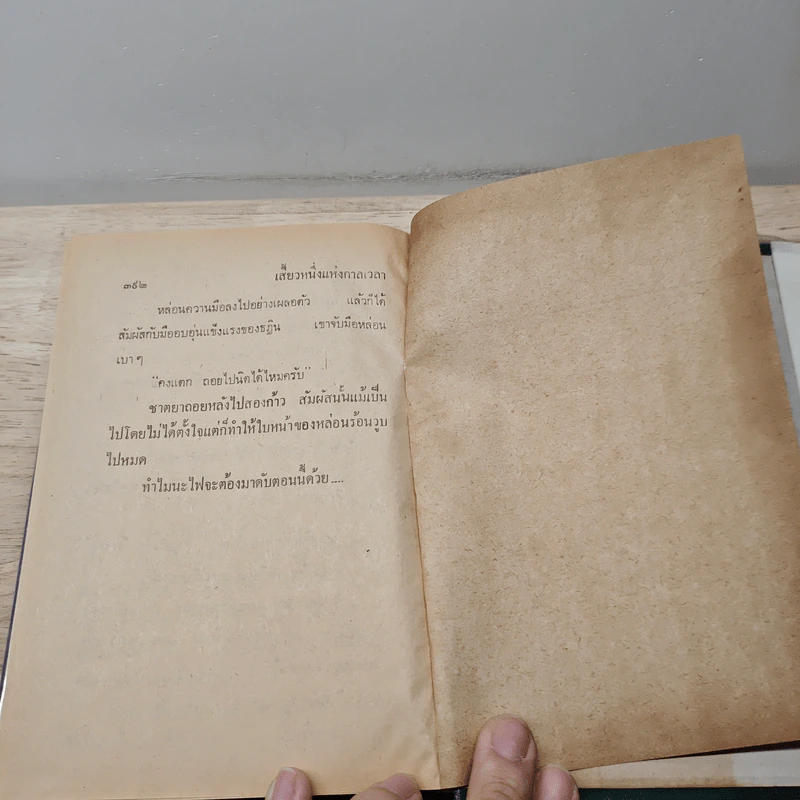 ๓๙๒ เสี้ยวหนึ่งแห่งกาลเวลา
หล่อนควานมือลงไปอย่างเผลอตัว แล้วก็ได้
สัมผัสกับมืออบอุ่นแข็งแรงของธฏิน เขาจับมือหล่อน
เบา ๆ
"คงแตก ถอยไปนิดได้ไหมครับ"
ชาตยาถอยหลังไปสองก้าว สัมผัสนั้นแม้เป็น
ไปโดยไม่ได้ตั้งใจแต่ก็ทำให้ใบหน้าของหล่อนร้อนวูบ
ไปหมด
ทำไมนะไฟจะต้องมาดับตอนนี้ด้วย....